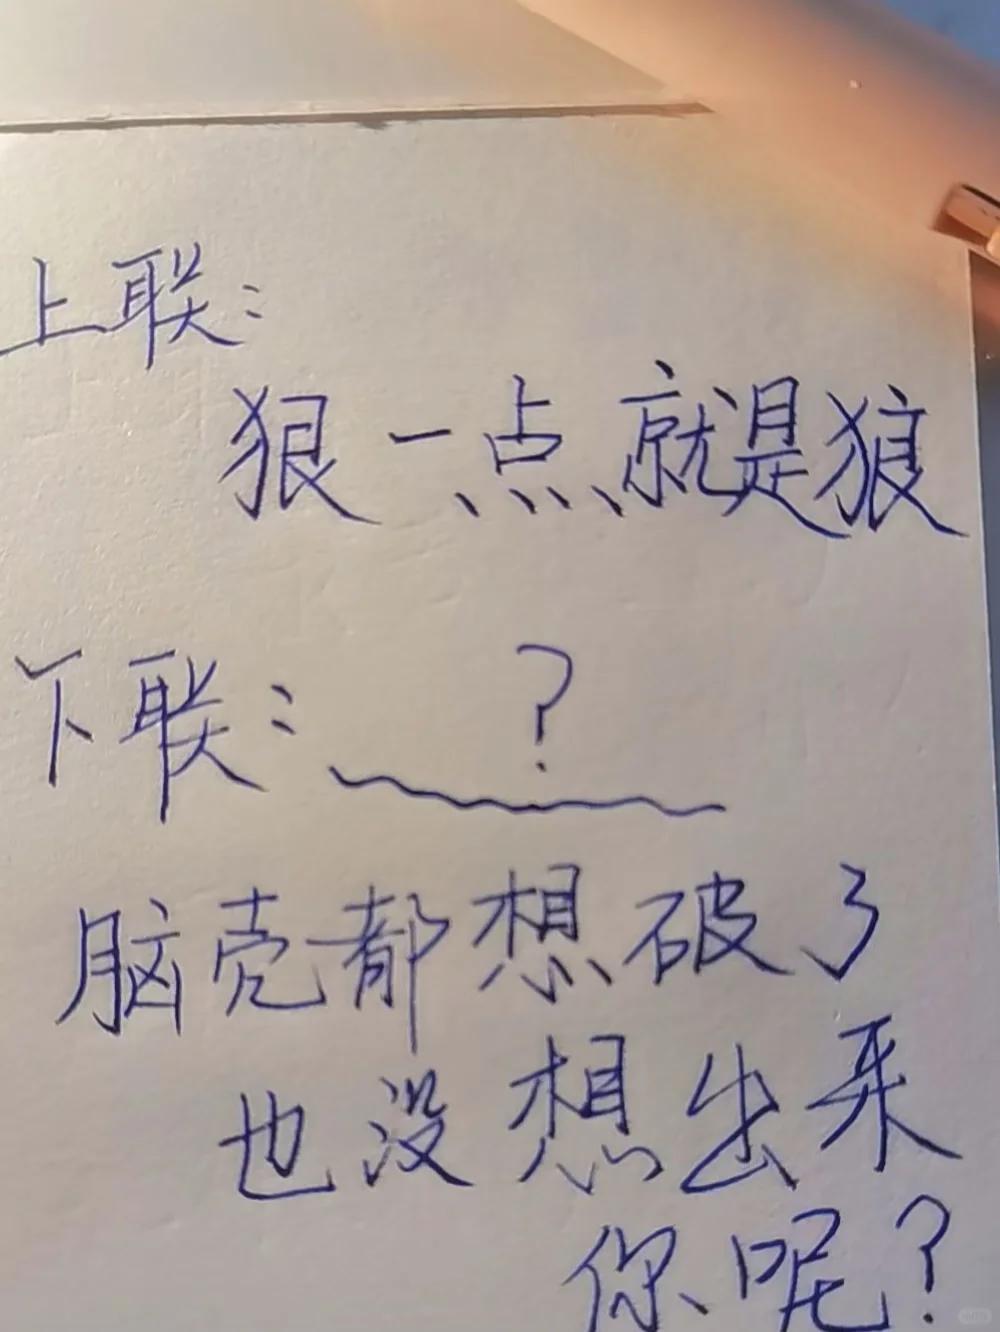 上联:
狠一点、就是狼
下联: ?
脑壳都想破了
也没想出来
你呢?